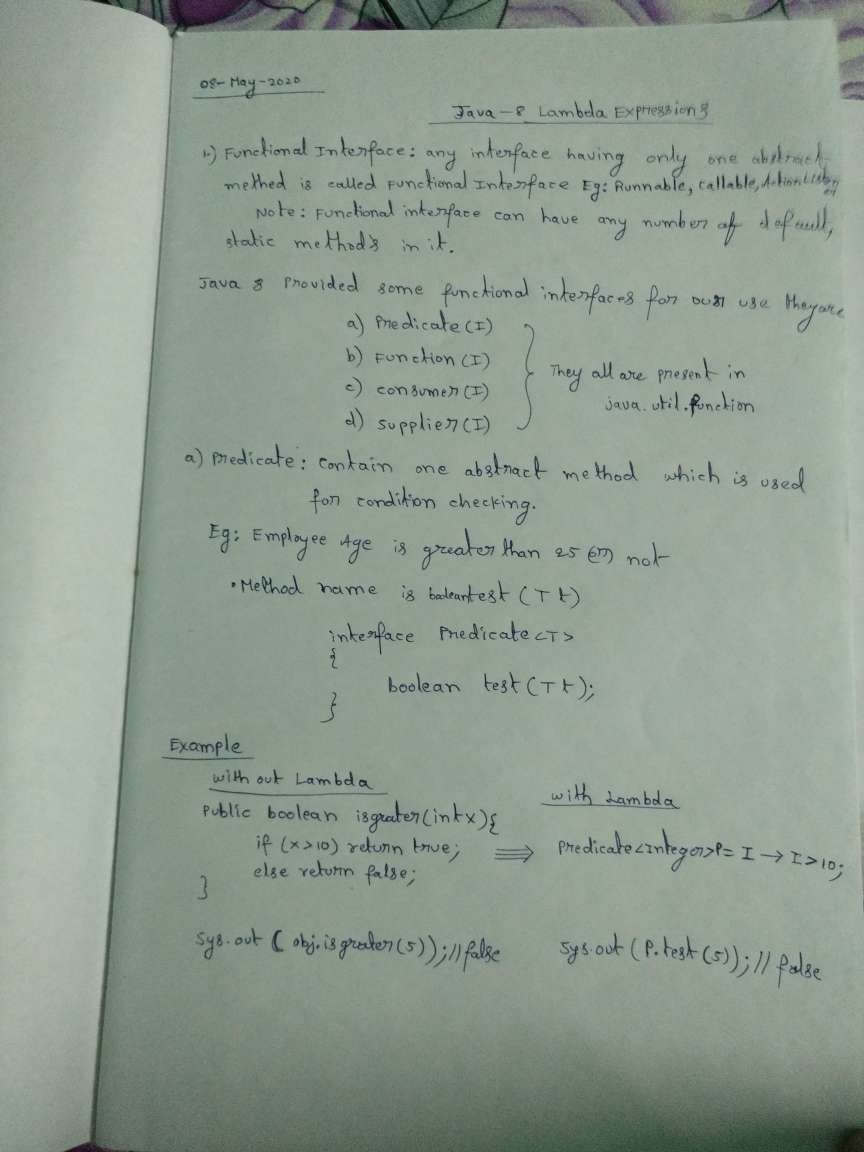 08-May-2020
Java-8 Lambda Expressions
1.) Functional Interface: any interface having only one abstract
method is called Functional Interface Eg: Runnable, Callable, ActionListener
Note: Functional interface can have any number of default,
static method's in it.
Java 8 Provided some functional interfaces for our use they are
a) Predicate (I)
b) Function (I)
c) consumer (I)
d) supplier (I)
They all are present in
java.util.function
a) Predicate: contain one abstract method which is used
for condition checking.
Eg: Employee Age is greater than 25 (or) not
• Method name is boolean test (T t)
interface Predicate<T>
{
boolean test (T t);
}
Example
with out Lambda
Public boolean isgrater(int x){
if (x>10) return true;
else return false;
}
Sys.out ( obj.isgreater(5)); // false
with Lambda
⇒ Predicate<Integer>P = I → I>10;
Sys.out (P.test(5)); // false